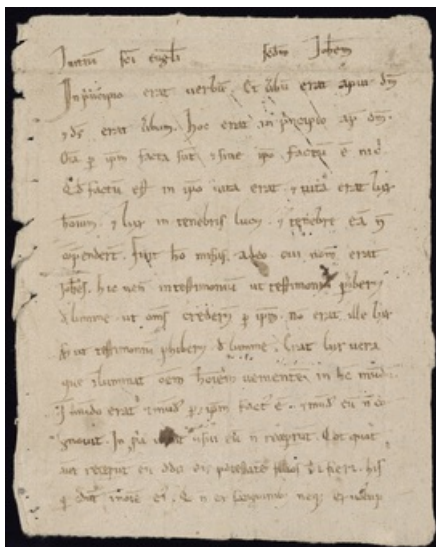 Initium sci eugli scdm Johem
In principio erat verbu. Et verbu erat apud dm
et ds erat verbum. Hoc erat in principio ap dm.
Oia p ipm facta sut et sine ipo factu e nic.
Qd factu est in ipo uita erat et uita erat lux
hoium. et lux in tenebris lucet et tenebre ea n
Fuit ho misus a deo cui nom erat
iohes. hic uen in testimoniu ut testimoniu phibery
d lumine ut oms crederet p ipm. no erat ille lux
ut testimoniu phibery d lumine. Erat lux uera
que iluminat oem hoiem uenientem in hc mudu.
I mudo erat et mud p ipm fact e. et mud eu n co
gnouit. In pia uenit et sui eu n receput. Cot quot
aut receput eu dedit eis potestate filios di fieri. his
q credut i noie ei. Q n ex saguinib neq ex uolup